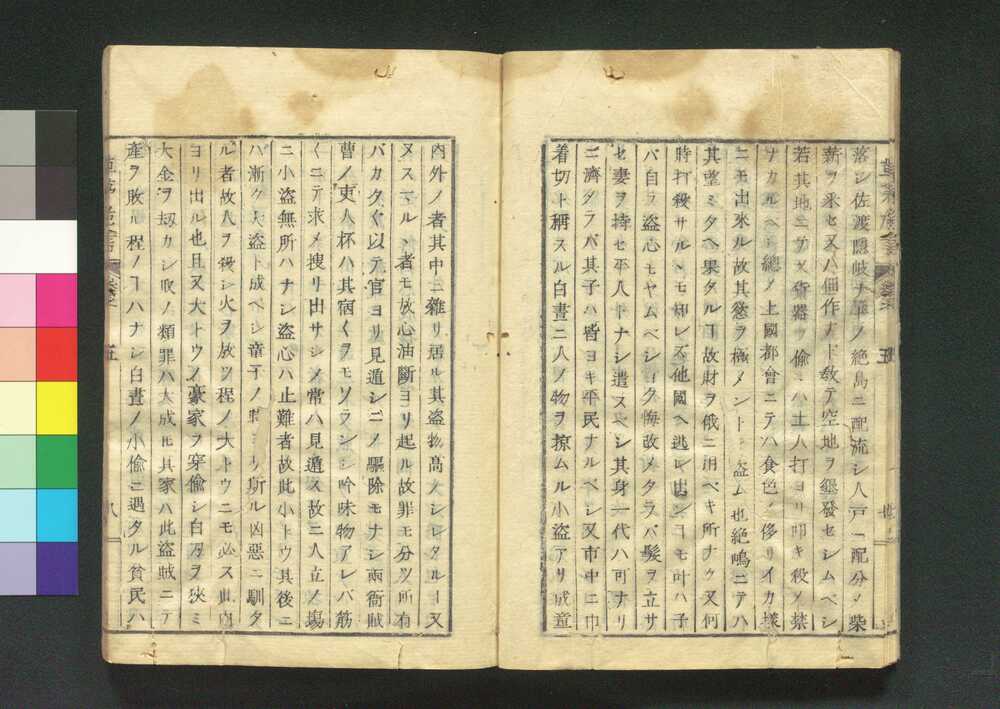 落シ佐渡隠岐ナドノ絶島ニ配流シ人戸ヘ配分ノ柴
薪ヲ釆セ又ハ佃作ナド教テ空地ヲ墾發セシムベシ
若其地ニテ又貨器ヲ偸ミハ土人打ヨリ叩キ殺ノ禁
ナカルベシ總ノ上國都會ニテハ食色ノ侈リイカ樣
ニモ出來ル故其慾ヲ極メントシ盗ム也絶嶋ニテハ
其望ミタヘ果タルヿ故財ヲ俄ニ用ベキ所ナク又何
時打殺サルヽモ知レズ他國ヘ逃レ出ンヿモ叶ハ子
バ自ラ盗心モヤムベシヨク悔改メタラバ髪ヲ立サ
セ妻ヲ持セ平人トナシ遣スベシ其身一代ハ可ナリ
ニ濟タラバ其子ハ皆ヨキ平民ナルベシ又市中ニ巾
着切ト稱スル白晝ニ人ノ物ヲ掠ムル小盗アリ成童
内外ノ者其中ニ雜リ居ル其盗物高ノシレタルヿ又
ヌスマルヽ者モ放心油斷ヨリ起ル故罪モ分ツ所有
バカタ〱以テ官ヨリ見遁シニメ驅除モナシ兩衙賊
曹ノ吏人杯ハ其宿〱ヲモソランジ吟味物アレバ筋
〱ニテ求メ搜リ出サシメ常ハ見遁ス故ニ人立ノ塲
ニ小盗無所ハナシ盗心ハ止難者故此小トウ其後ニ
ハ漸々大盗ト成ベシ童子ノ時ヨリ斯ル凶惡ニ馴タ
ル者故人ヲ殺シ火ヲ放ツ程ノ大トウニモ必ス此内
ヨリ出ル也且又大トウノ豪家ヲ穿偸シ白刃ヲ狹ミ
大金ヲ刼カシ取ノ類罪ハ大成ㇾ𪜈其家ハ此盗賊ニテ
産ヲ敗ル程ノヿハナシ白晝ノ小偸ニ遇タル貧民ハ